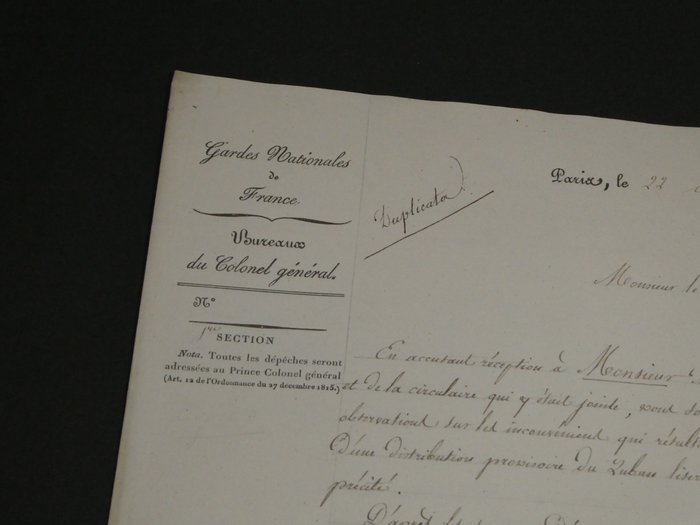 Gardes Nationales
de
France.
Bureaux
du Colonel général.
N°
1ère SECTION
Nota. Toutes les dépêches seront
adressées au Prince Colonel général
(Art. 12 de l'Ordonnance du 27 décembre 1815.)
Duplicata
Paris, le 22
Monsieur le
En accusant réception à Monsieur
et de la circulaire qui y était jointe, vous
observations sur les inconvénients qui
D'une distribution provisoire du Ruban
précité.
D'après